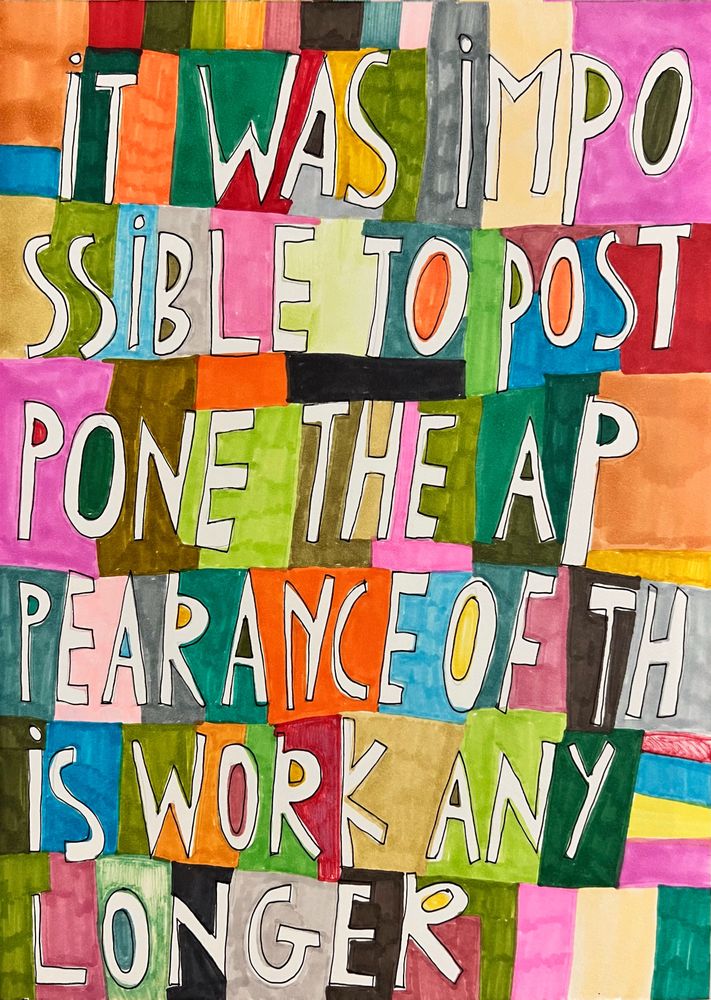 iT WAS iMPO
SSiBLE TO POST
PONE THE AP
PEARANCE OF TH
iS WORK ANY
LONGER